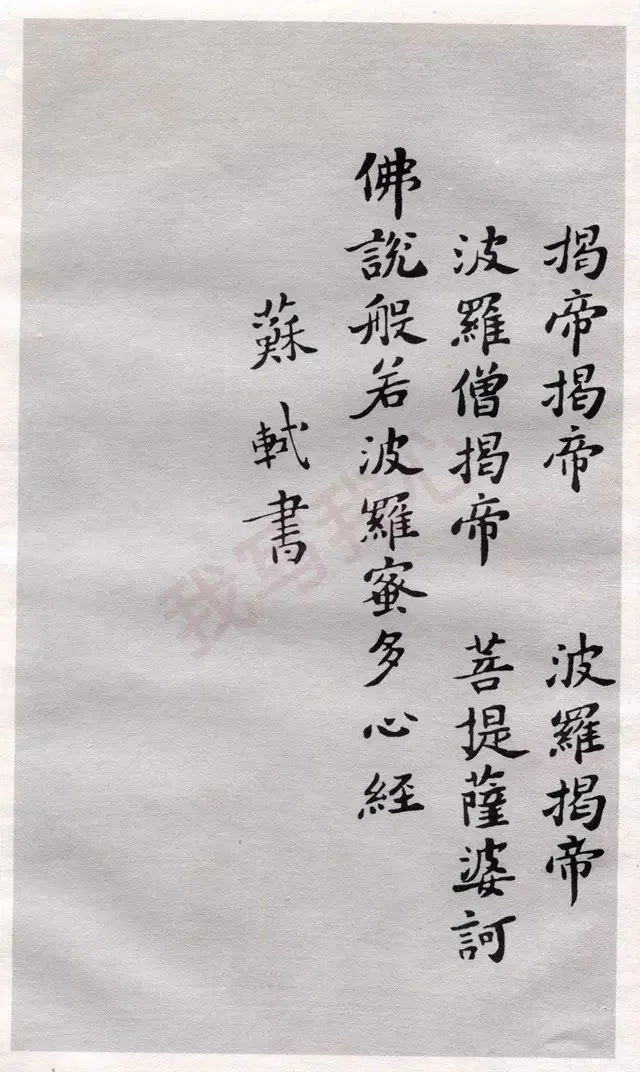 揭帝揭帝 波羅揭帝
波羅僧揭帝 菩提薩婆訶
佛說般若波羅蜜多心經
蘇軾書
我写我心